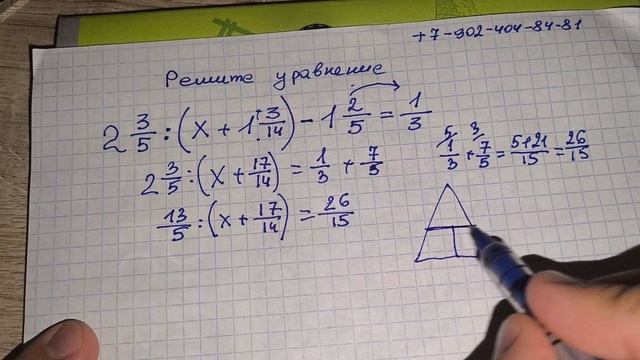 +7-902-404-84-81
Решите уравнение
2 3/5 : (x + 1 3/14) - 1 2/5 = 1/3
2 3/5 : (x + 17/14) = 1/3 + 7/5
13/5 : (x + 17/14) = 26/15
5 3
1/3 + 7/5 = 5+21/15 = 26/15